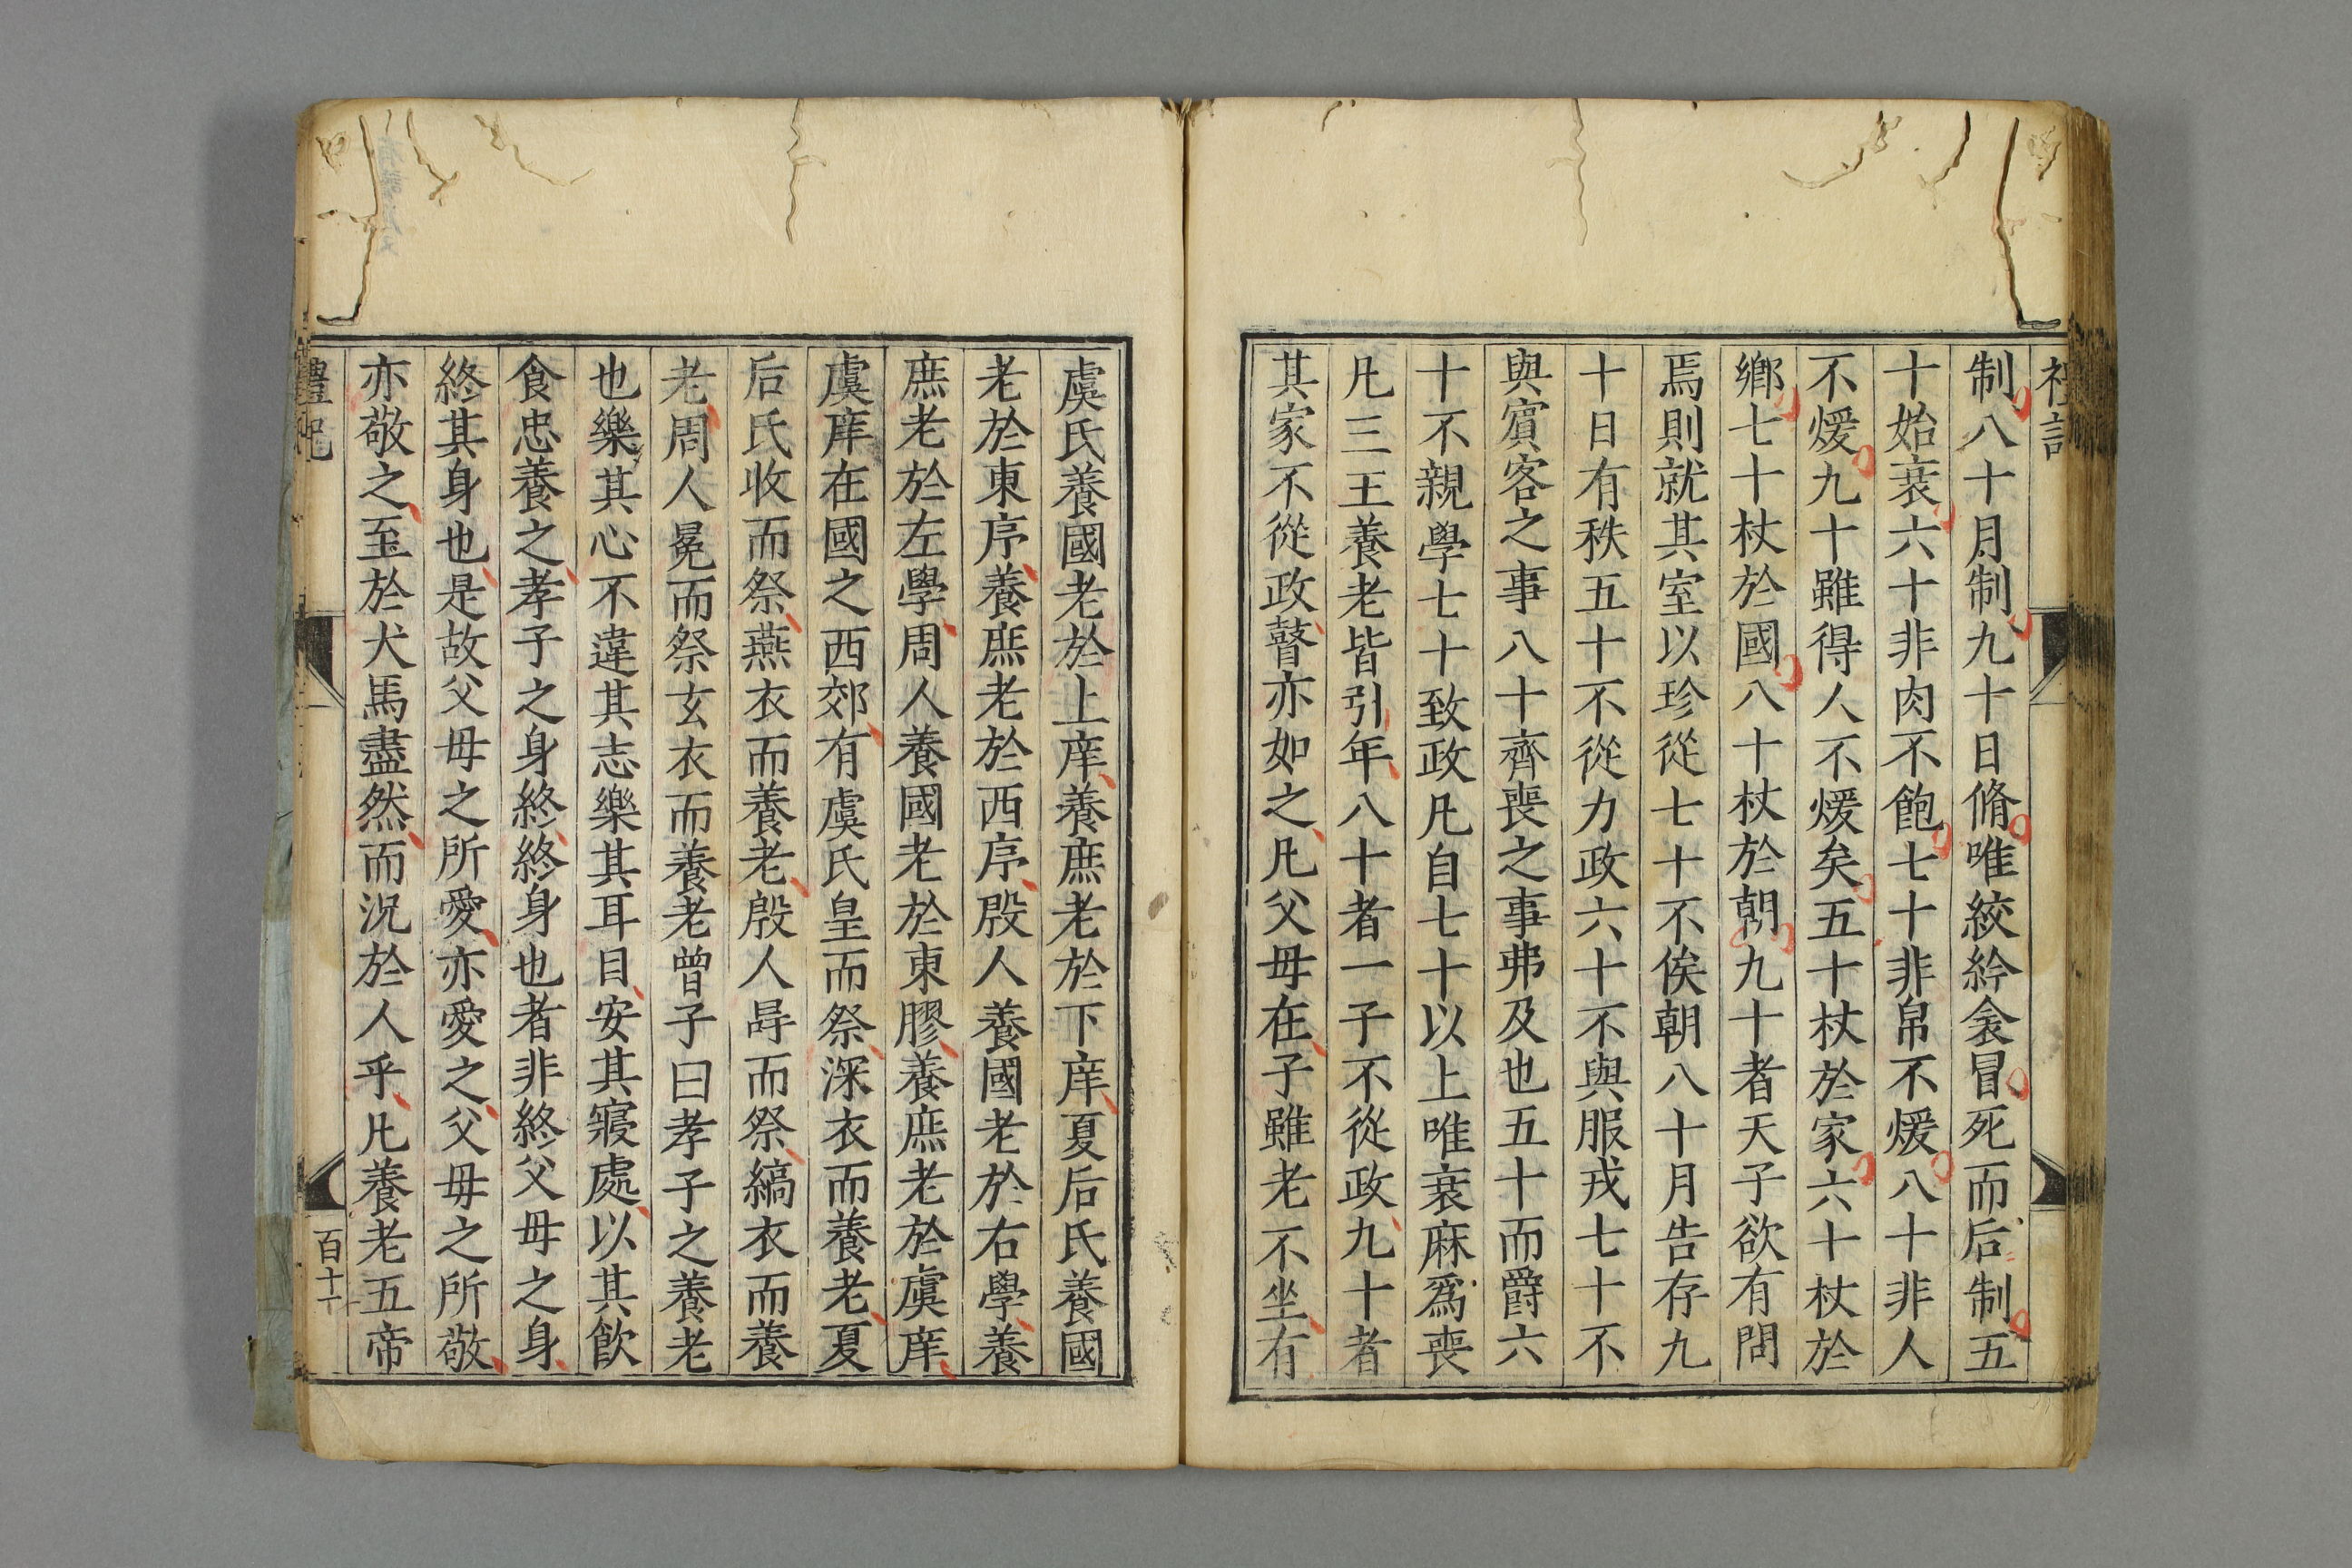 禮記
制八十月制九十日脩唯絞紟衾冒死而后制五
十始衰六十非肉不飽七十非帛不煖八十非人
不煖九十雖得人不煖矣五十杖於家六十杖於
鄉七十杖於國八十杖於朝九十者天子欲有問
焉則就其室以珍從七十不俟朝八十月告存九
十日有秩五十不從力政六十不與服戎七十不
與賓客之事八十齊喪之事弗及也五十而爵六
十不親學七十致政凡自七十以上唯衰麻爲喪
凡三王養老皆引年八十者一子不從政九十者
其家不從政瞽亦如之凡父母在子雖老不坐有
虞氏養國老於上庠養庶老於下庠夏后氏養國
老於東序養庶老於西序殷人養國老於右學養
庶老於左學周人養國老於東膠養庶老於虞庠
虞庠在國之西郊有虞氏皇而祭深衣而養老夏
后氏收而祭燕衣而養老殷人冔而祭縞衣而養
老周人冕而祭玄衣而養老曾子曰孝子之養老
也樂其心不違其志樂其耳目安其寢處以其飲
食忠養之孝子之身終終身也者非終父母之身
終其身也是故父母之所愛亦愛之父母之所敬
亦敬之至於犬馬盡然而況於人乎凡養老五帝
禮記
百十